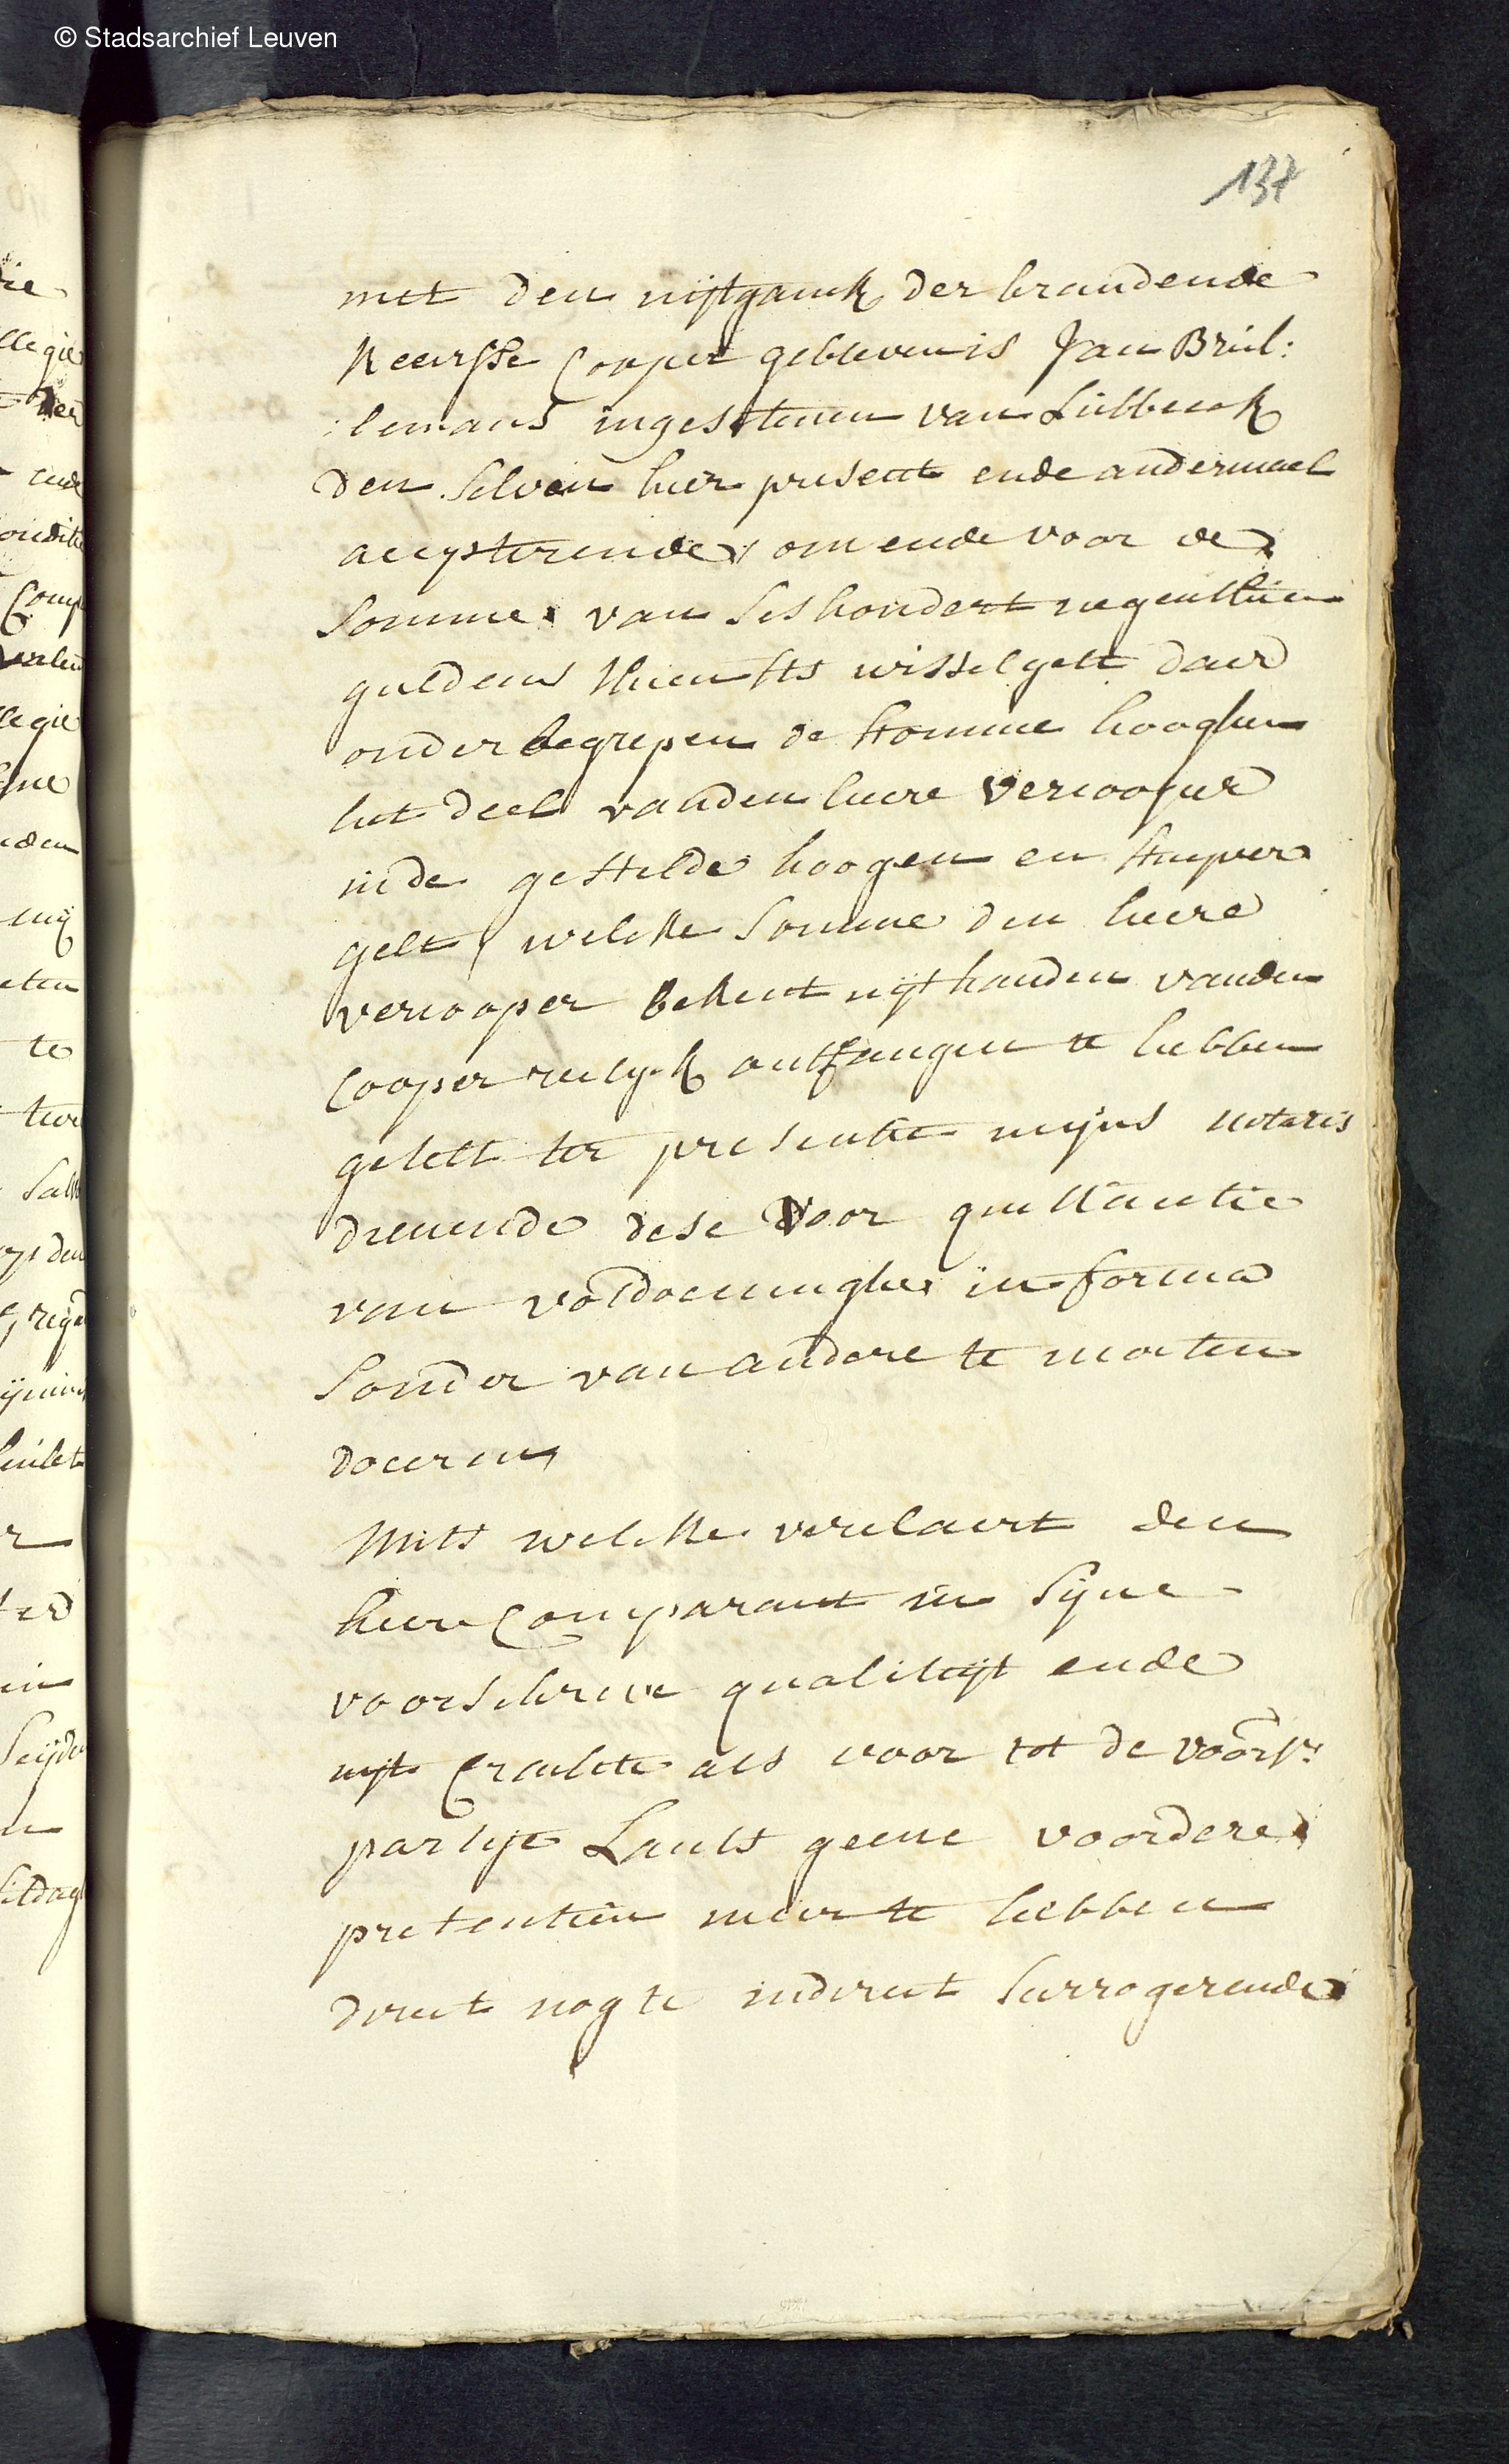 © Stadsarchief Leuven
137
met den uijtganck der brandende
keersse Cooper gebleven is Jan Brul:
:lemans ingesetenen van Lubbeeck
den selven hier present ende andermael
accepterende, om ende voor de
somme van seshondert negenthien
guldens thien sts wisselgelt daer
onder begrepen de somme hooghen
het deel vanden heere vercooper
inde gestelde hoogen en stuyver
gelt, welcke somme den heere
vercooper bekent uijt handen vanden
Cooper reelyck ontfangen te hebben
getelt ter presentie mijns notaris
dienende dese voor quittantie
van voldoeninghe in forma
sonder van andere te moeten
doceren,
Mits welcke verclaert den
heere Comparant in sijne
voorschreve qualiteijt ende
uijt Crachte als voor tot de voors.
partije Lants geene voordere
pretentien meer te hebben
direct nogte indirect surrogerende